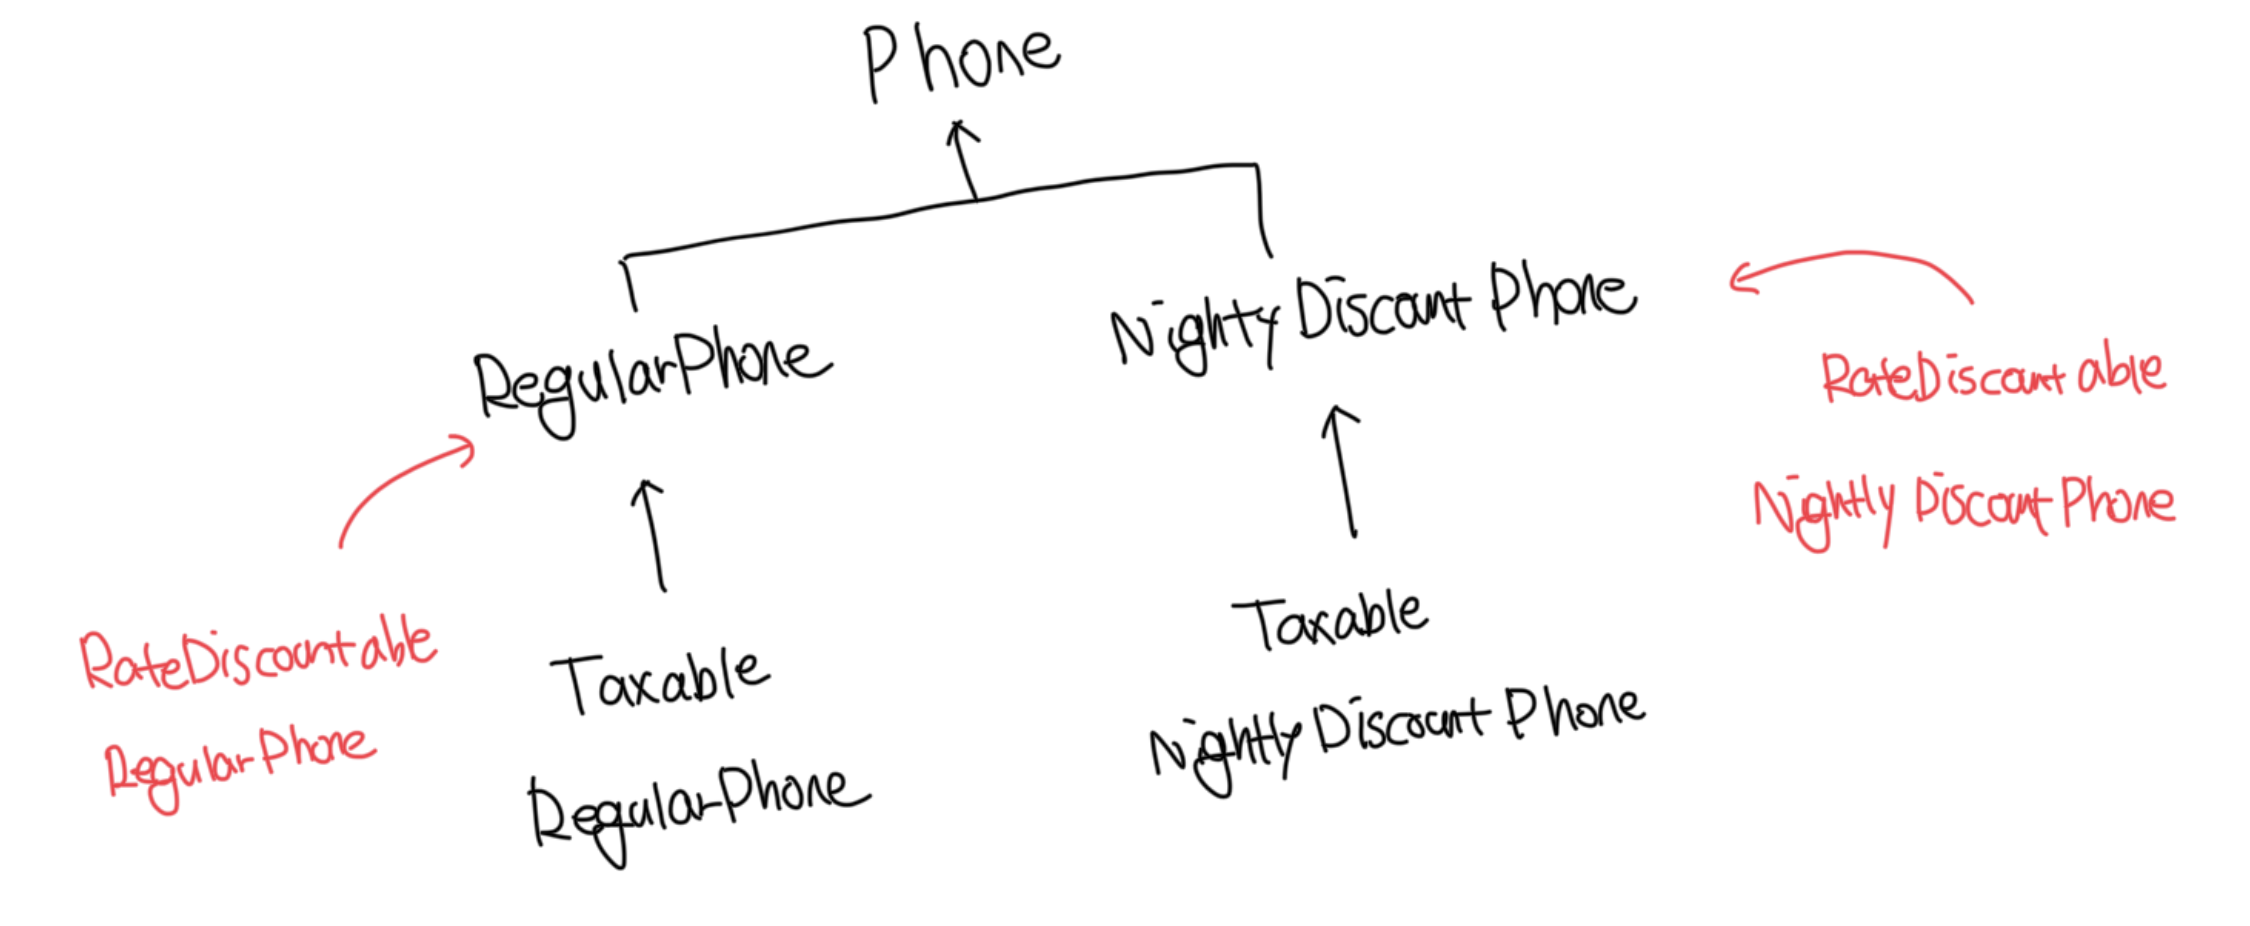 Phone
RegularPhone
Nighty Discount Phone
RateDiscountable
Nightly Discount Phone
RateDiscountable
RegularPhone
Taxable
RegularPhone
Taxable
Nightly Discount Phone